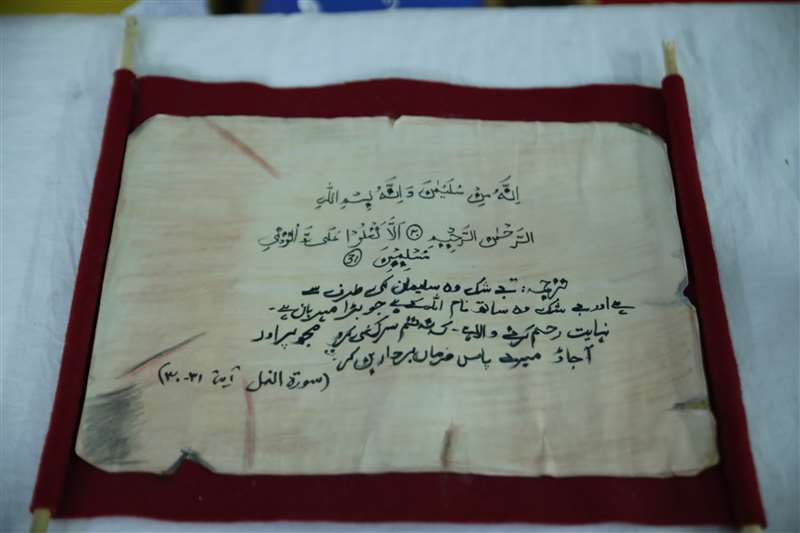 اِنَّهٗ مِنْ سُلَیْمٰنَ وَ اِنَّهٗ بِسْمِ اللهِ
الرَّحْمٰنِ الرَّحِیْمِ ۳۰ اَلَّا تَعْلُوْا عَلَیَّ وَ اْتُوْنِیْ
مُسْلِمِیْنَ 31
ترجمہ: بے شک وہ سلیمان کی طرف سے
ہے اور بے شک وہ ساتھ نام اللہ کے ہے جو بڑا مہربان ہے۔
نہایت رحم کرنے والا ہے۔ کہ تم سرکشی نہ کرو مجھ پر اور
آجاؤ میرے پاس فرماں بردار بن کر
(سورۃ النمل آیۃ ۳۱-۳۰)